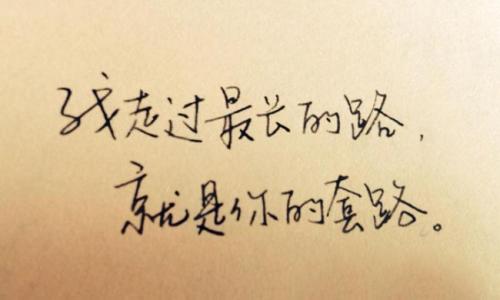 我走过最长的路,
就是你的套路。